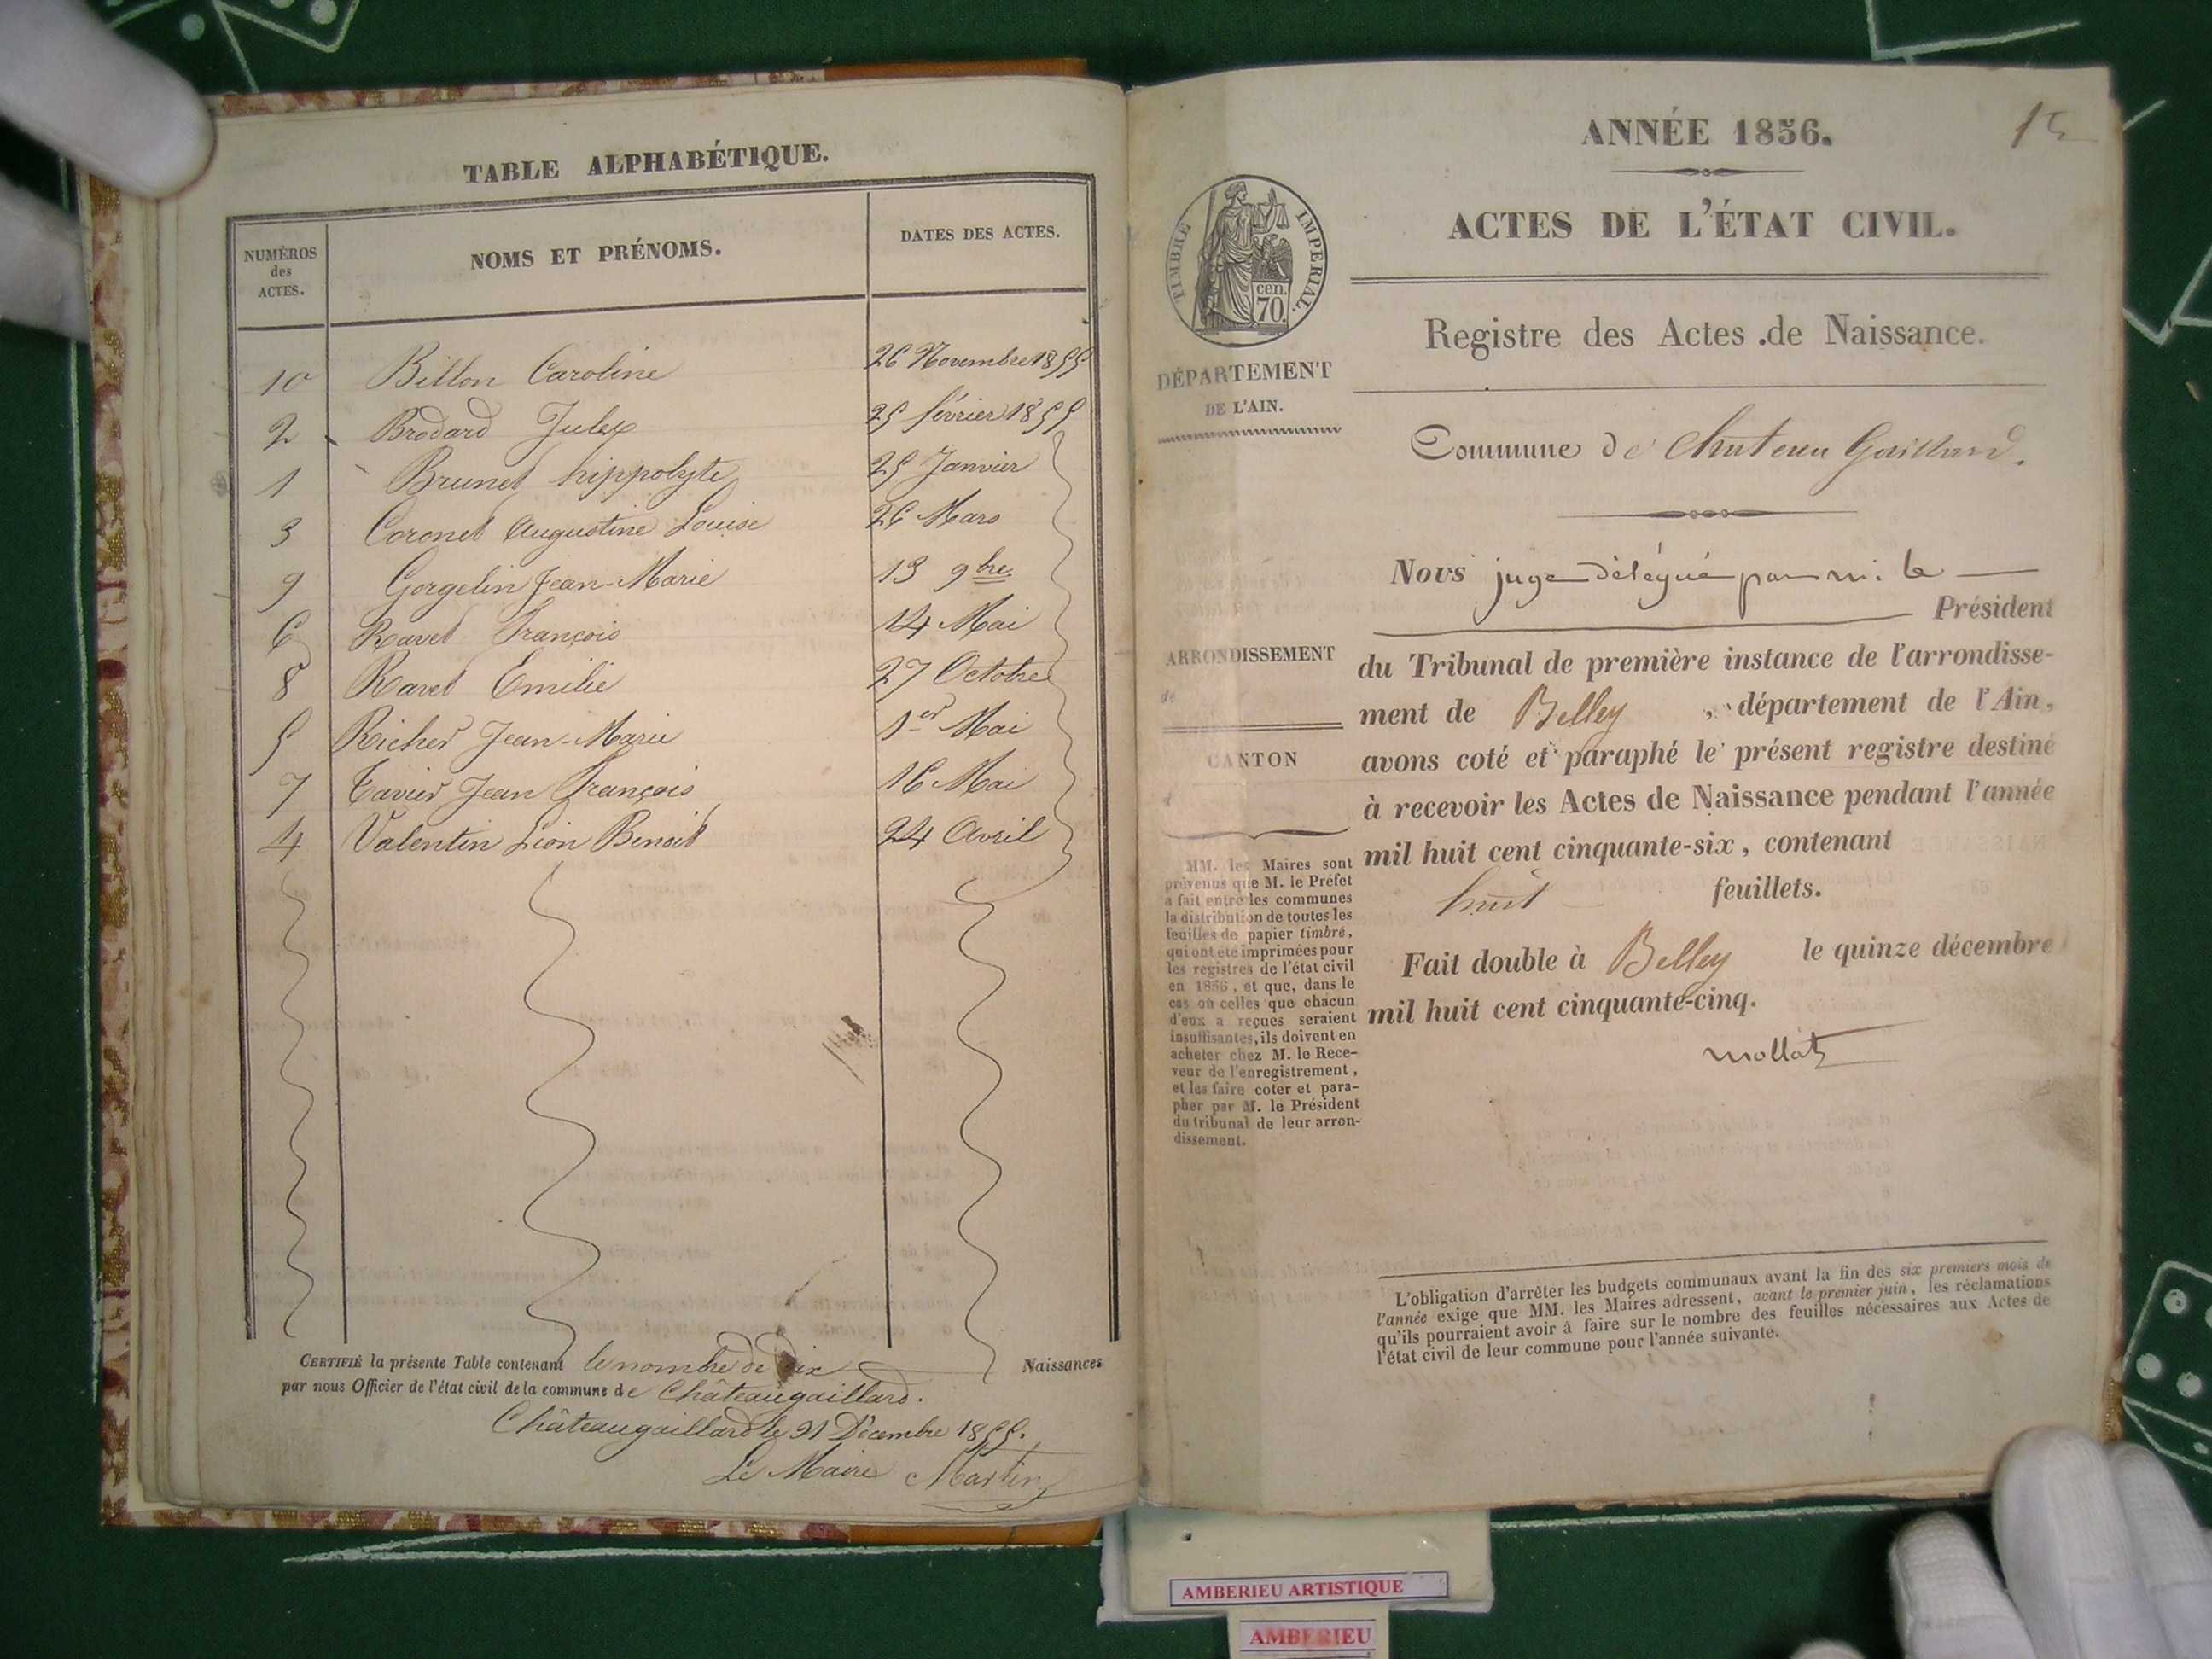 TABLE ALPHABÉTIQUE.
NUMÉROS des ACTES.
NOMS ET PRÉNOMS.
DATES DES ACTES.
10 Billon Caroline 26 Novembre 1855
2 Brodard Jules 25 février 1855
1 Brunet hippolyte 25 Janvier
3 Coronet Augustine Louise 26 Mars
9 Gorgelin Jean-Marie 13 9bre
6 Ravet François 14 Mai
8 Ravet Emilie 27 Octobre
5 Richer Jean-Marie 1er Mai
7 Tavier Jean François 16 Mai
4 Valentin Léon Benoit 24 Avril
CERTIFIÉ la présente Table contenant le nombre de dix Naissances
par nous Officier de l'état civil de la commune de Châteaugaillard.
Châteaugaillard le 31 Décembre 1855.
Le Maire Martin
15
ANNÉE 1856.
ACTES DE L'ÉTAT CIVIL.
TIMBRE IMPERIAL.
cen.
70.
DÉPARTEMENT
DE L'AIN.
Registre des Actes de Naissance.
Commune de Chateau Gaillard.
Nous juge délégué par m. le
Président
du Tribunal de première instance de l'arrondisse-
ment de Belley, département de l'Ain,
avons coté et paraphé le présent registre destiné
à recevoir les Actes de Naissance pendant l'année
mil huit cent cinquante-six, contenant
huit feuillets.
Fait double à Belley le quinze décembre
mil huit cent cinquante-cinq.
mollat
ARRONDISSEMENT
de
CANTON
d
MM. les Maires sont
prévenus que M. le Préfet
a fait entre les communes
la distribution de toutes les
feuilles de papier timbré,
qui ont été imprimées pour
les registres de l'état civil
en 1856, et que, dans le
cas où celles que chacun
d'eux a reçues seraient
insuffisantes, ils doivent en
acheter chez M. le Rece-
veur de l'enregistrement,
et les faire coter et para-
pher par M. le Président
du tribunal de leur arron-
dissement.
L'obligation d'arrêter les budgets communaux avant la fin des six premiers mois de
l'année exige que MM. les Maires adressent, avant le premier juin, les réclamations
qu'ils pourraient avoir à faire sur le nombre des feuilles nécessaires aux Actes de
l'état civil de leur commune pour l'année suivante.
AMBERIEU ARTISTIQUE
AMBERIEU